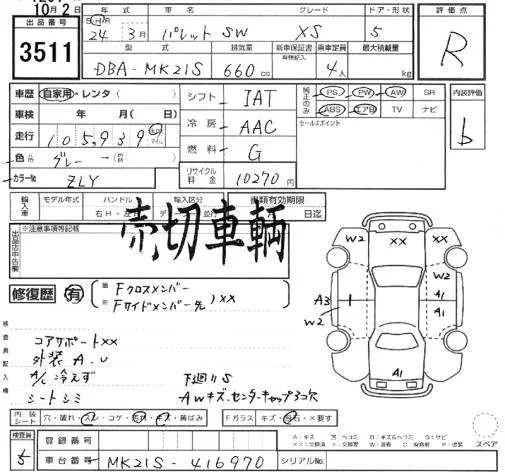 10月2日
出品番号 3511
年式 車名 グレード ドア・形状 評価点
S・H・R 24年 3月 パレットSW XS 5 R
型式 排気量 新車保証書 乗車定員 最大積載量
有無記入
DBA-MK21S 660cc 4人 kg
車歴 自家用・レンタ( ) シフト IAT 純正のみ PS PW AW SR 内装評価
車検 年 月( 日) 冷房 AAC ABS エアB TV ナビ b
走行 105,939 km マイル 燃料 G セールスポイント
色 グレー→ リサイクル料金 10270円
カラーNo ZLY
輸入車 モデル年式 ハンドル 輸入区分 書類有効期限
右H・左H ディーラー・並行 日迄
※注意事項等記載
売切車輌
修復歴 有 箇所 Fクロスメンバー
Fサイドメンバー先 )××
W2 ×× W2
A3 W2 A1 A1
A1
検査員記入欄
コアサポート××
外装A.U
A/C冷えず 下廻りS
シートシミ AWキズ.センターキャップ3コ欠
内装シート 穴・破れ・スレ・コゲ・汚れ・キズ・黄ばみ Fガラス キズ・飛石・×要す
検査員 5 登録番号
車台番号 MK21S-416970 シリアルNo.
A:キズ U:ヘコミ B:キズ&ヘコミ S:サビ
××:交換済 ×:要交換 W:波有 C:腐食 P:塗装
スペア